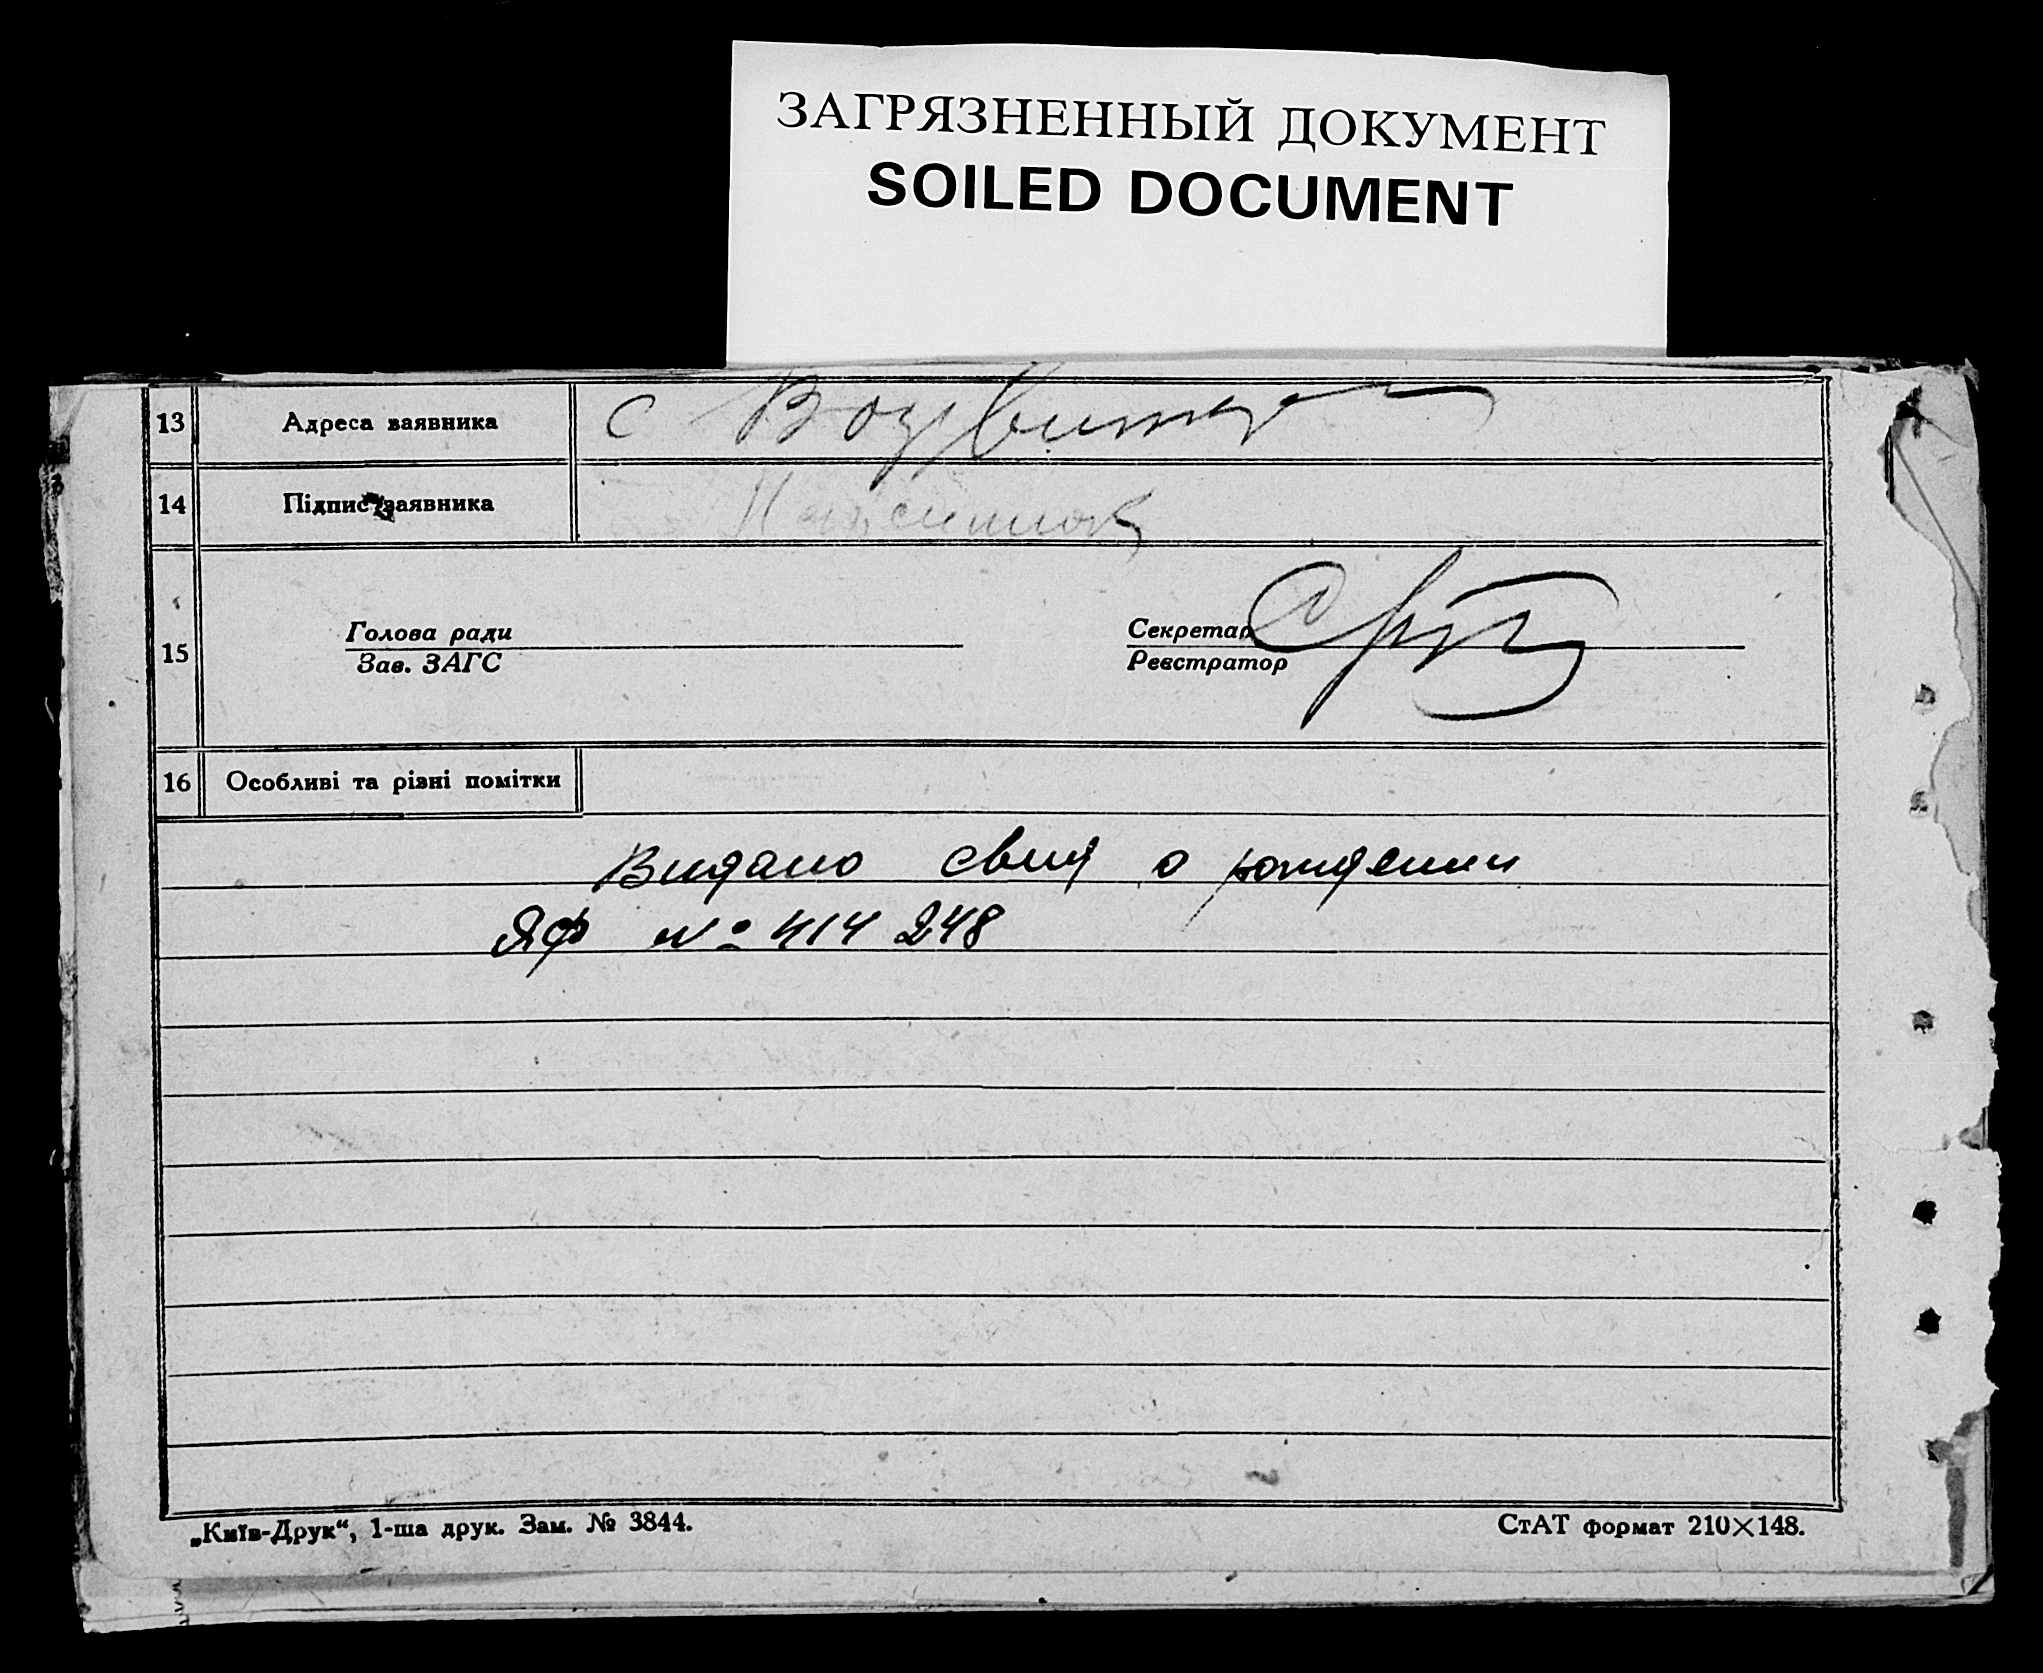 ЗАГРЯЗНЕННЫЙ ДОКУМЕНТ
SOILED DOCUMENT
13 Адреса заявника с
14 Підпис заявника
15
Голова ради Секретар
Зав. ЗАГС Реєстратор
16 Особливі та різні помітки
Видано свид о рождении
ЯФ № 414 248
„Київ-Друк“, 1-ша друк. Зам. № 3844. СтАТ формат 210×148.